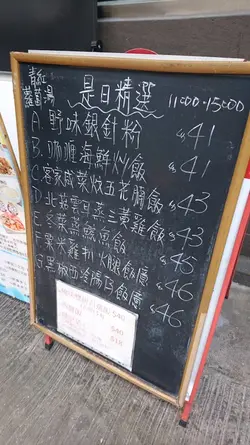 青紅
蘿蔔湯
是日精選
11:00-15:00
A. 野味銀針粉 $41
B. 咖喱海鮮炒飯 $41
C. 客家咸菜炆五花腩飯 $43
D. 北菇雲耳蒸三黃雞飯 $43
E. 冬菜蒸鯇魚飯 $45
F. 粟米雞扒火腿飯 $46
G. 黑椒西冷腸仔飯 $46
$40
$40
$18